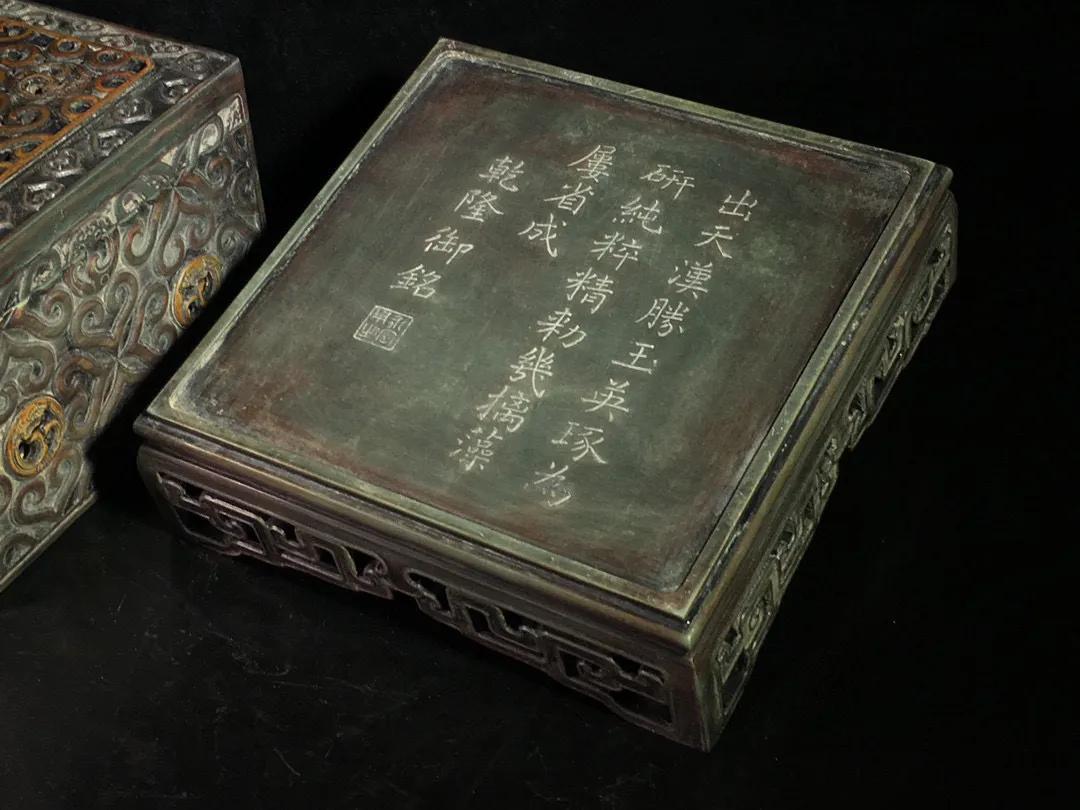 出天漢勝玉英琢為
研純粹精勑幾摛藻
屢省成
乾隆御銘